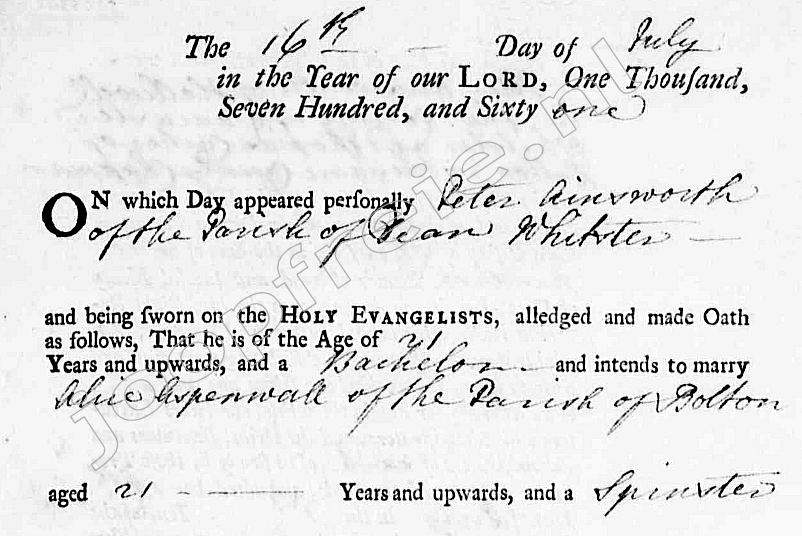 The 16th - Day of July
in the Year of our LORD, One Thouſand,
Seven Hundred, and Sixty one
ON which Day appeared perſonally Peter Ainsworth
of the Parish of Dean Whitster
and being ſworn on the HOLY EVANGELISTS, alledged and made Oath
as follows, That he is of the Age of 21
Years and upwards, and a Bachelor and intends to marry
Alice Aspenwall of the Parish of Bolton
aged 21 Years and upwards, and a Spinster
joopfresie.nl